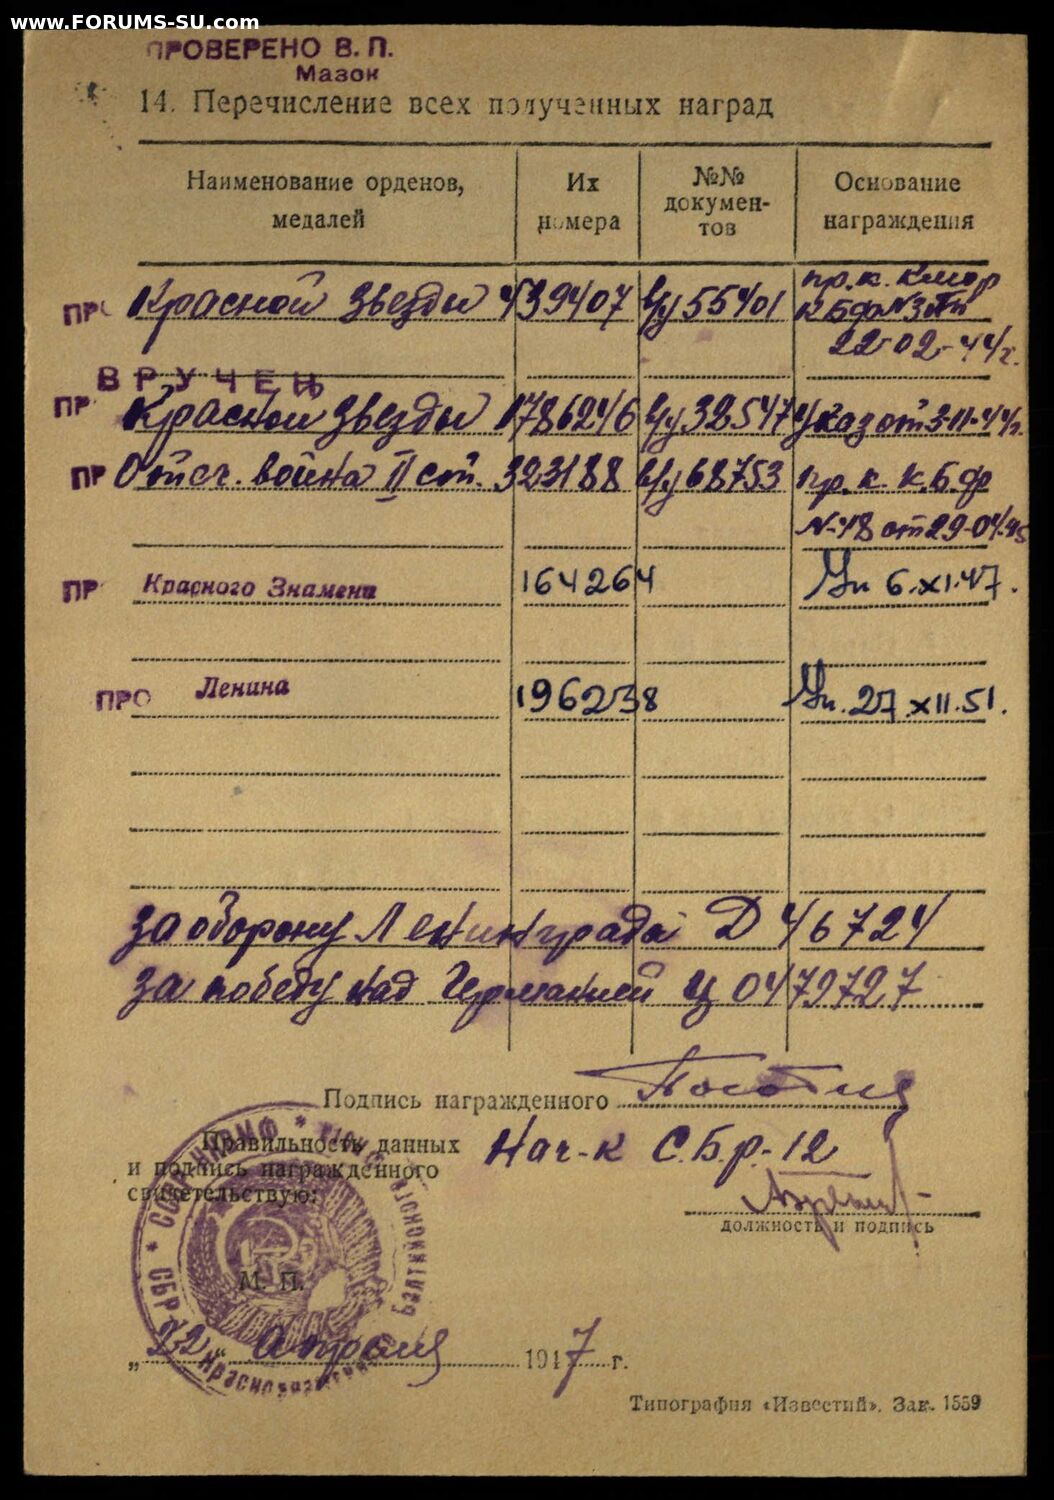 www.FORUMS-SU.com
ПРОВЕРЕНО В. П.
Мазок
14. Перечисление всех полученных наград
Наименование орденов, медалей
Их номера
№№ документов
Основание награждения
ПРО Красной звезды 439407 Цу 55401 пр. к.
КБФ №3
22-02-44г.
ВРУЧЕН
ПР Красной звезды 1786246 Цу 32547 Указ от 3-11-44г.
ПР Отеч. война II ст. 323188 Цу 68753 пр. к. К.Б.ф
N-48 от 29-04-45
ПР Красного Знамени 164264 Ук 6.XI.47.
ПРО Ленина 196238 Ук. 27.XII.51.
За оборону Ленинграда Д 46724
За победу над Германией Ц 0479727
Подпись награжденного
Правильность данных
и подпись награжденного
свидетельствую:
Нач-к С.Б.р.-12
должность и подпись
М. П.
„22“ Апреля 1947 г.
Типография «Известий». Зак. 1559